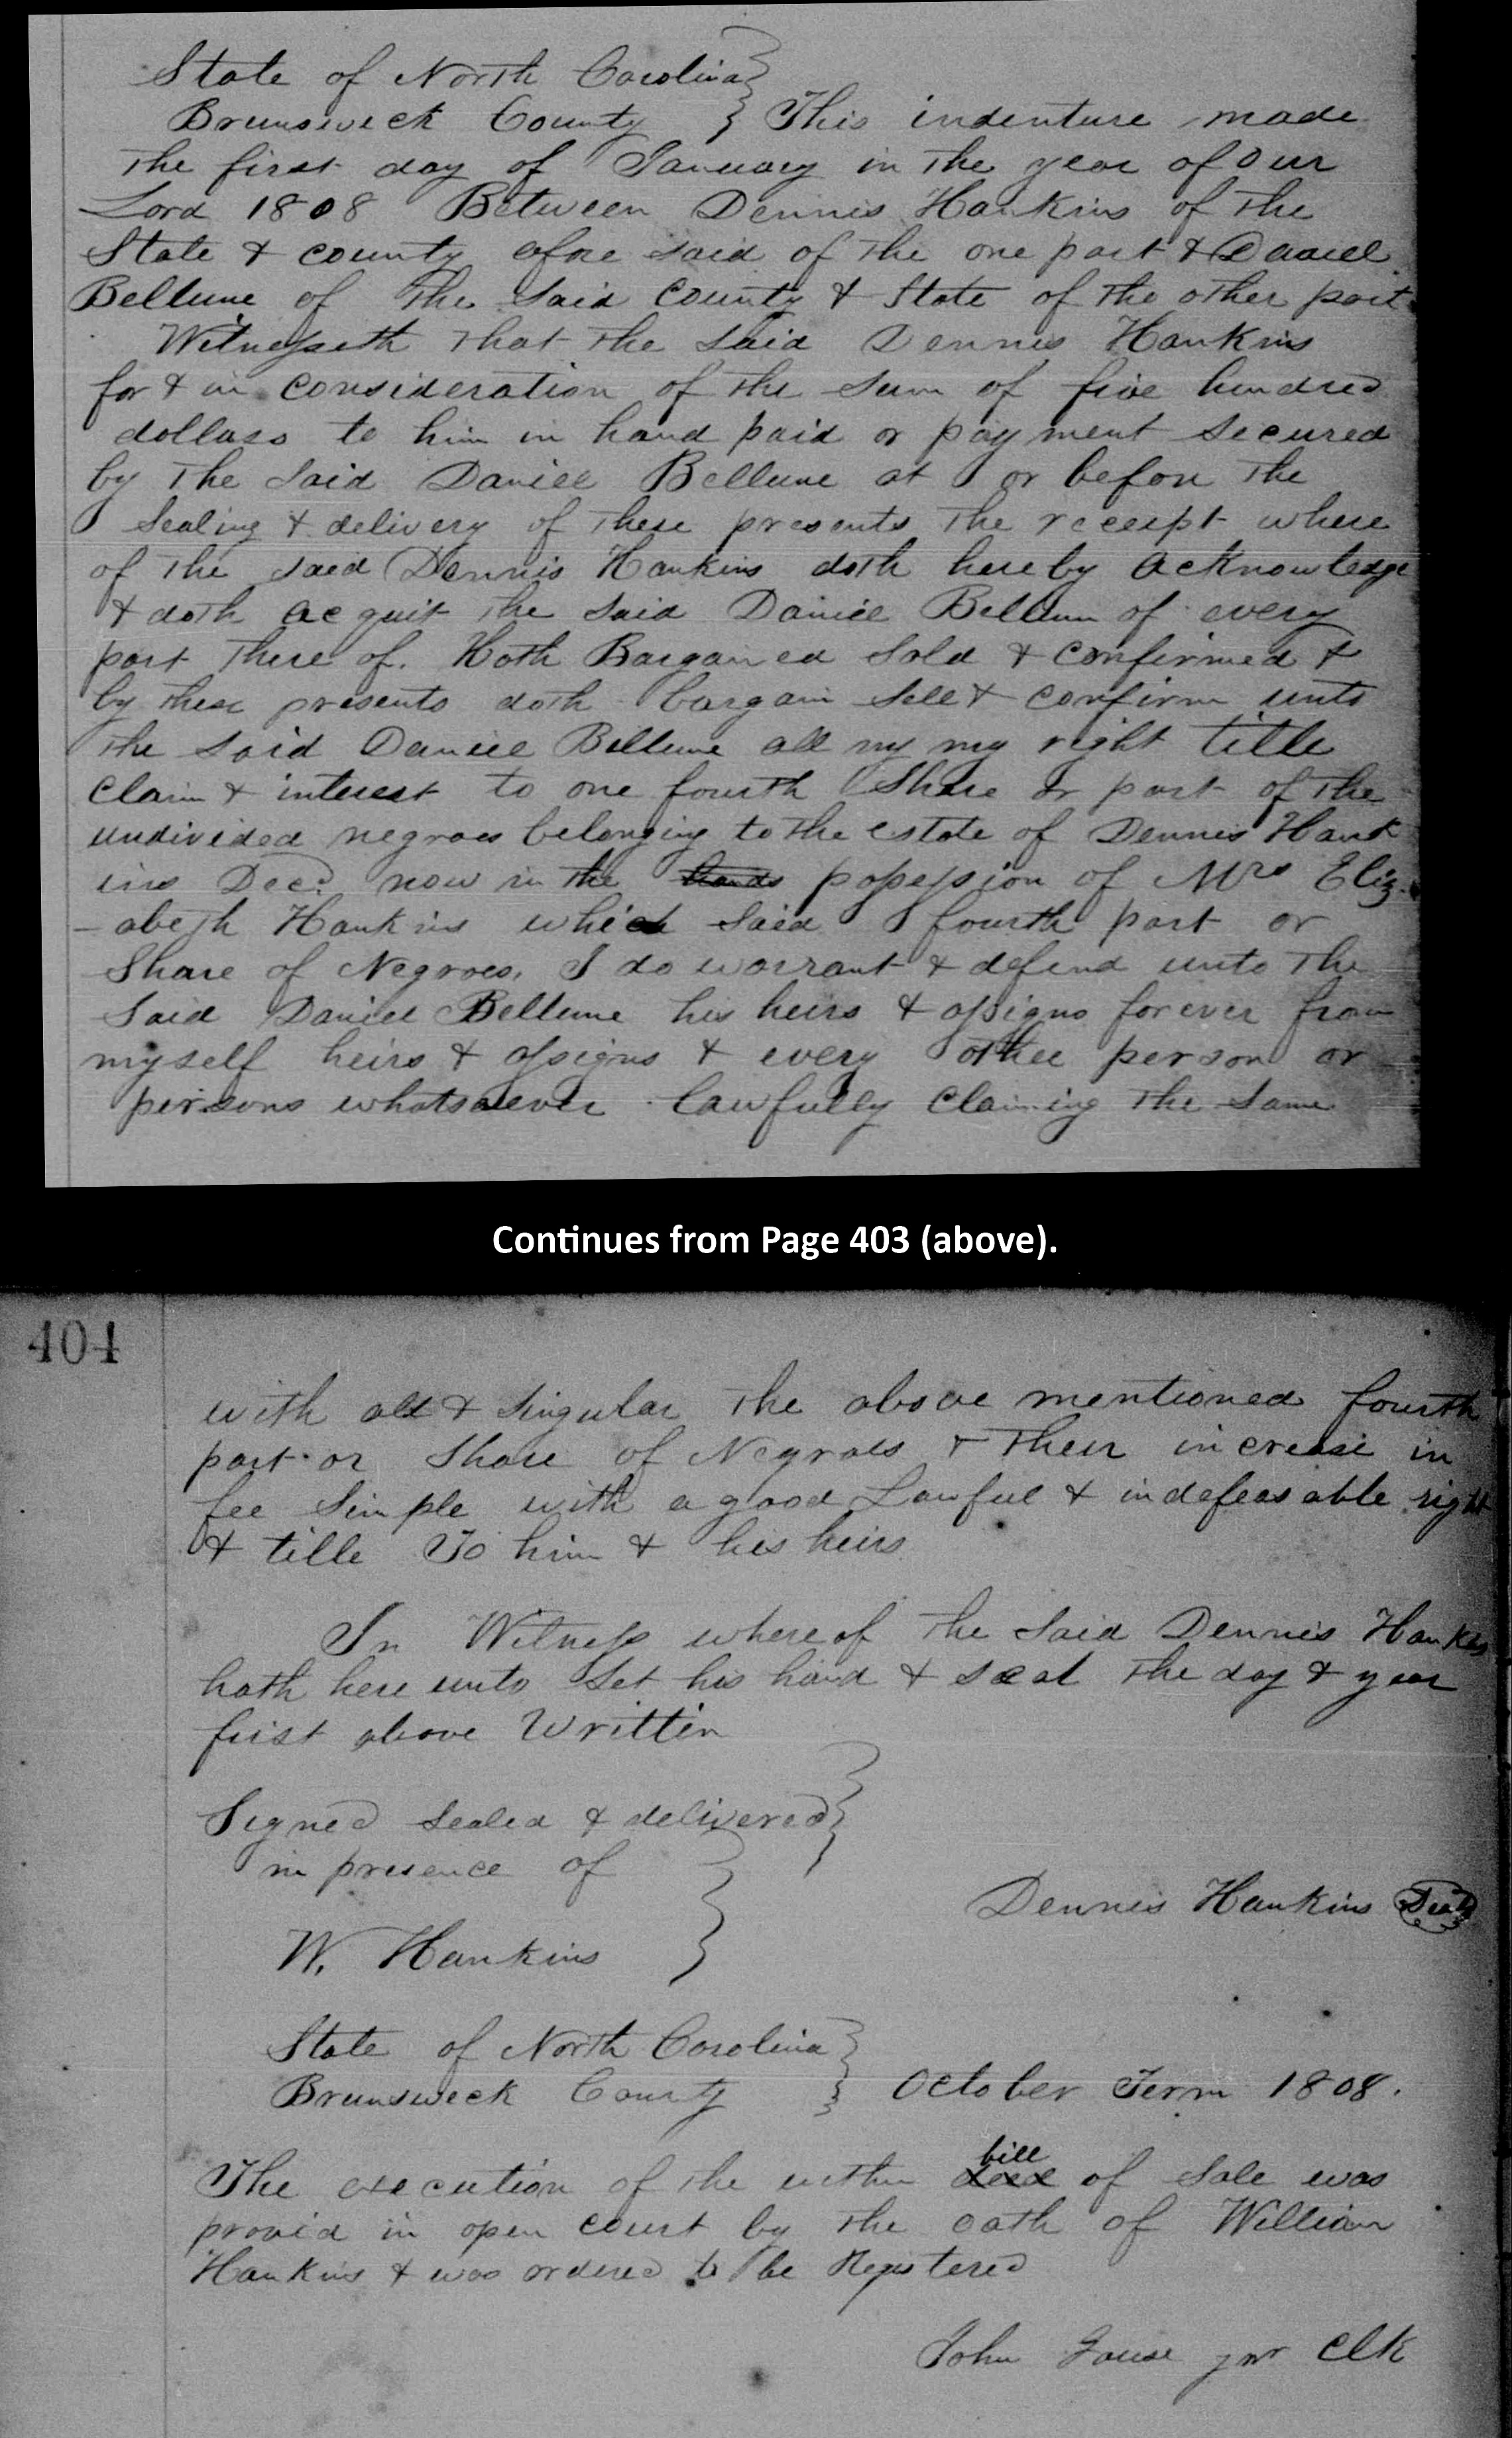 State of North Carolina
Brunswick County } This indenture made
the first day of January in the year of our
Lord 1808 Between Dennis Hankins of the
State & county afore said of the one part & Daniel
Bellune of the said County & State of the other part
Witnesseth that the said Dennis Hankins
for & in consideration of the sum of five hundred
dollars to him in hand paid or payment secured
by the said Daniel Bellune at or before the
Sealing & delivery of these presents the receipt where
of the said Dennis Hankins doth hereby acknowledge
& doth acquit the said Daniel Bellune of every
part there of. Hath Bargained sold & confirmed &
by these presents doth bargain sell & confirm unto
the said Daniel Bellune all my my right title
claim & interest to one fourth Share or part of the
undivided negroes belonging to the estate of Dennis Hank
ins Decd now in the hands possession of Mrs Eliz-
-abeth Hankins which said fourth part or
Share of Negroes, I do warrant & defend unto the
Said Daniel Bellune his heirs & assigns forever from
myself heirs & assigns & every other person or
persons whatsoever lawfully claiming the same
Continues from Page 403 (above).
404
with all & singular the above mentioned fourth
part or Share of Negroes & their increase in
fee simple with a good Lawful & indefeasable right
& title To him & his heirs
In Witness whereof the said Dennis Hankins
hath here unto set his hand & seal the day & year
first above Written
Signed sealed & delivered
in presence of
Dennis Hankins Seal
W. Hankins
State of North Carolina
Brunswick County } October Term 1808.
bill
The execution of the within deed of sale was
provid in open court by the oath of William
Hankins & was ordered to be Registered
John Gause jnr Clk